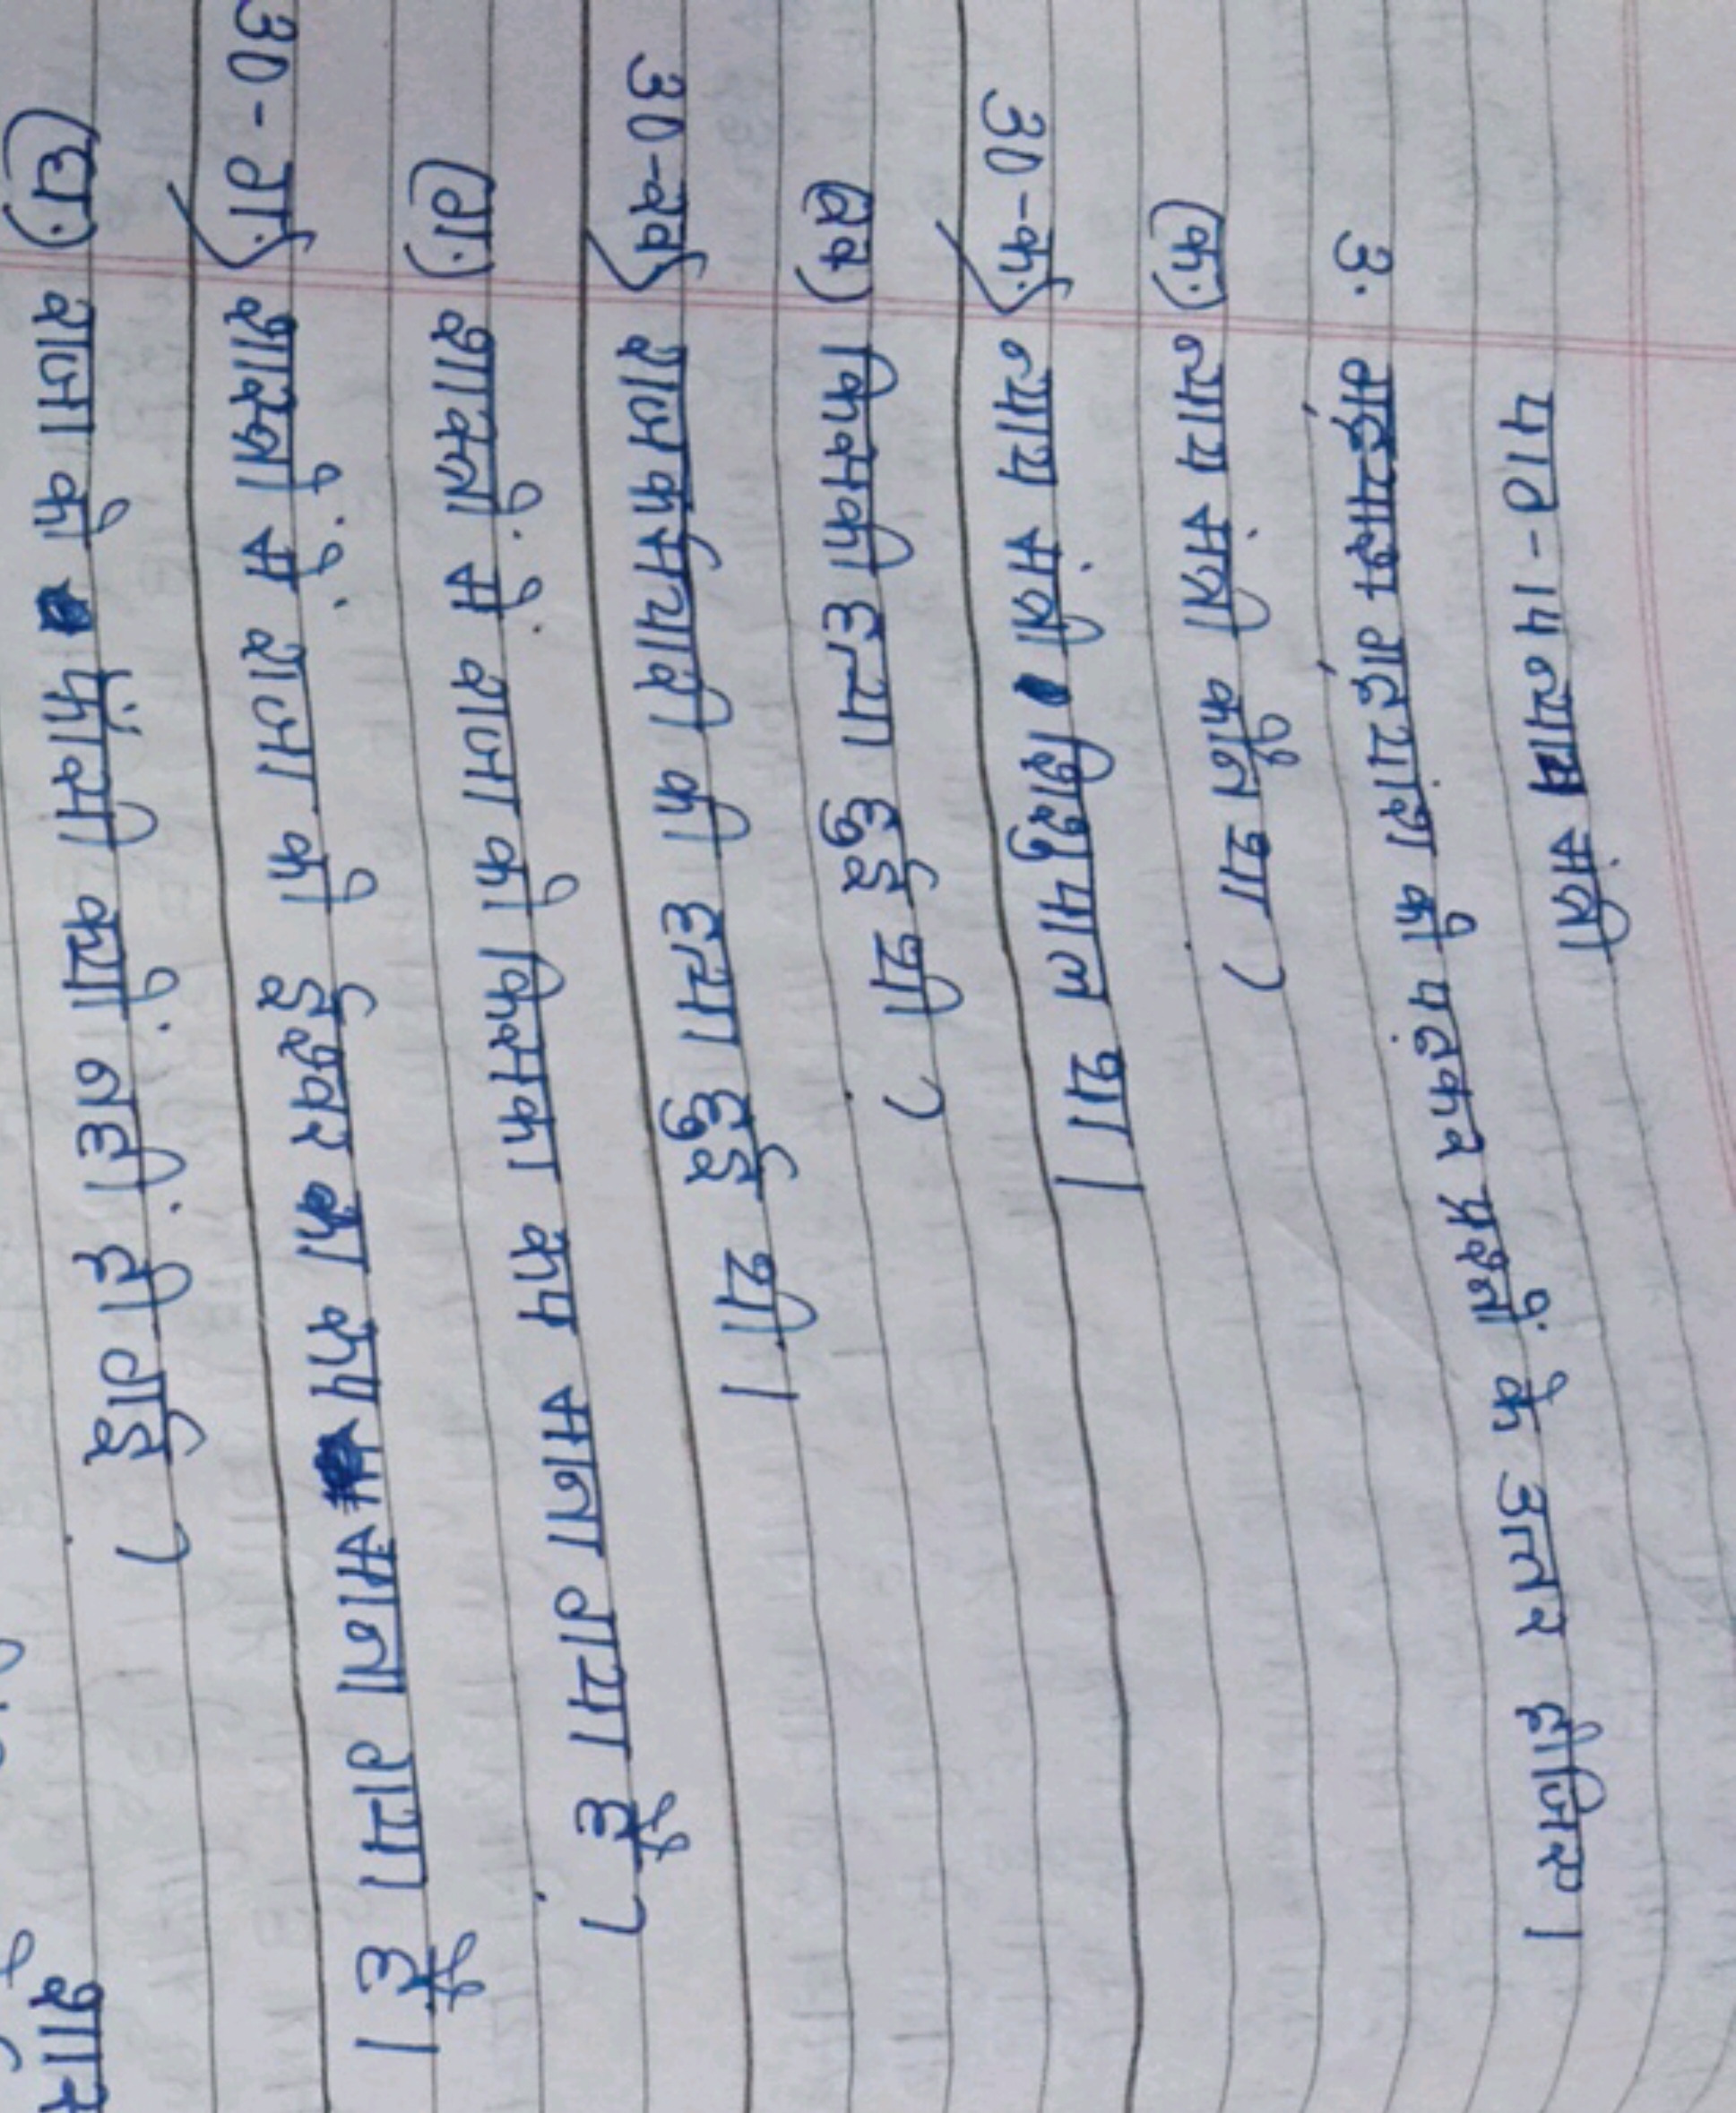 पाठ-14 न्याय मंत्री
3. गद्यांश को पढ़कर प्रश्नों के उत्तर दीजिए।
(क.) न्याय मंत्री कौन था?
उ०-क.) न्याय मंत्री शिशुपाल था।
(ख) किसकी हत्या हुई थी?
उ०-ख) राजकर्मचारी की हत्या हुई थी।
(ग.) शास्त्रों में राजा को किसका रूप माना गया है?
उ०-ग.) शास्त्रों में राजा को ईश्वर का रूप माना गया है।
(घ.) राजा को फाँसी क्यों नहीं दी गई?